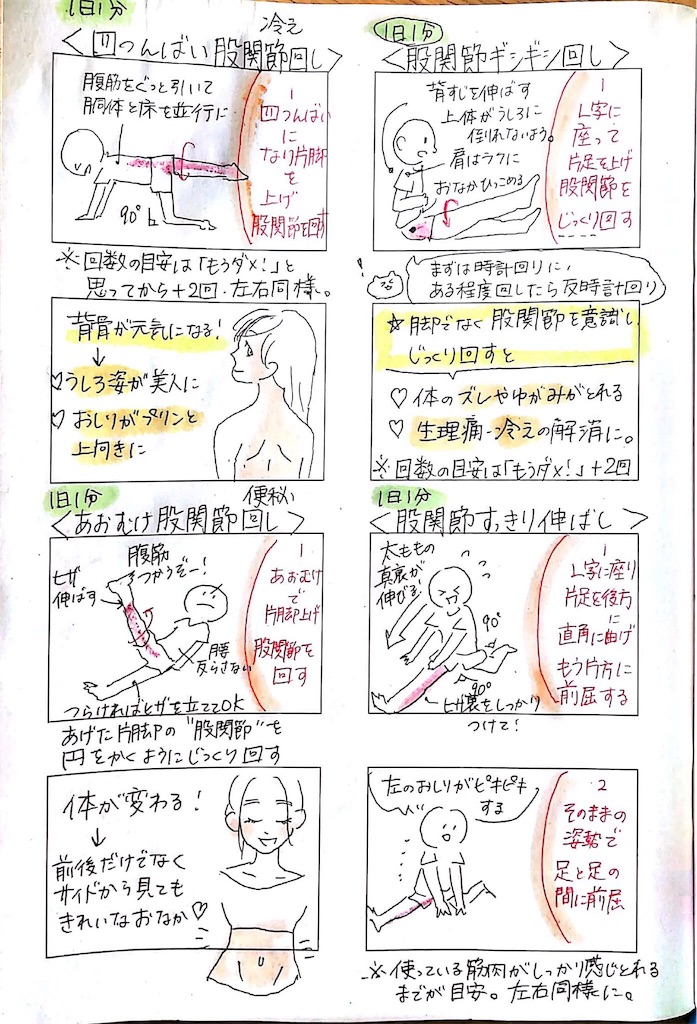 1日1分
冷え
＜四つんばい股関節回し＞
腹筋をぐっと引いて
胴体と床を並行に
90°
1
四つんばい
に
なり片脚
を
上げ
股関節を回す
※回数の目安は「もうダメ!」と
思ってから+2回・左右同様。
背骨が元気になる!
↓
♡うしろ姿が美人に
♡おしりがプリンと
上向きに
1日1分
＜股関節ギシギシ回し＞
背すじを伸ばす
上体がうしろに
倒れないよう。
肩はラフに
おなかひっこめる
1
L字に
座って
片足を上げ
股関節を
じっくり回す
まずは時計回りに,
ある程度回したら反時計回り
☆脚でなく股関節を意識し
じっくり回すと
♡体のズレやゆがみがとれる
♡生理痛・冷えの解消に。
※回数の目安は「もうダメ!」+2回
1日1分
便秘
＜あおむけ股関節回し＞
腹筋
つかうぞー!
ヒザ
伸ばす
腰
反らさない
つらければヒザを立ててOK
1
あおむけ
で
片脚上げ
股関節を
回す
あげた片脚の"股関節"を
円をかくようにじっくり回す
体が変わる!
↓
前後だけでなく
サイドから見ても
きれいなおなか♡
1日1分
＜股関節すっきり伸ばし＞
太ももの
真裏が
伸びる!
90°
90°
ヒザ裏をしっかり
つけて!
1
L字に座り
片足を後方
に
直角に曲げ
もう片方に
前屈する
左のおしりがピキピキ
する
2
そのままの
姿勢で
足と足の
間に前屈
※使っている筋肉がしっかり感じとれる
までが目安。左右同様に。